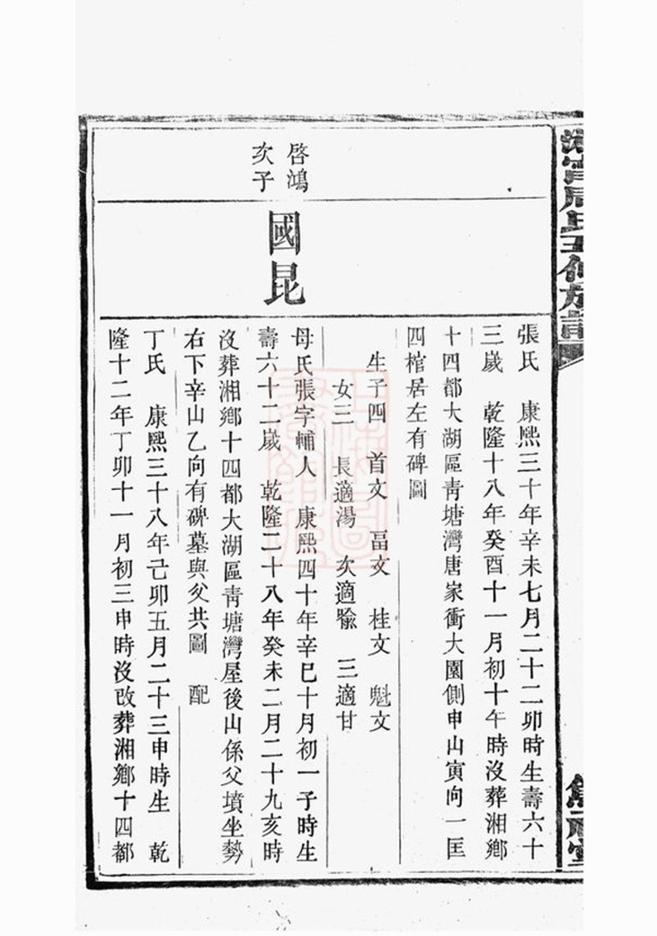 周氏五修族譜
張氏　康熙三十年辛未七月二十二卯時生壽六十
三歲　乾隆十八年癸酉十一月初十午時沒葬湘鄉
十四都大湖區靑塘灣唐家衝大園側申山寅向一匡
四棺居左有碑圖
生子四　首文　畐文　桂文　魁文
女三　長適湯　次適喻　三適甘
啓鴻
次子
國昆
母氏張字輔人　康熙四十年辛巳十月初一子時生
壽六十二歲　乾隆二十八年癸未二月二十九亥時
沒葬湘鄉十四都大湖區靑塘灣屋後山係父墳坐勢
右下辛山乙向有碑墓與父共圖　配
丁氏　康熙三十八年己卯五月二十三申時生　乾
隆十二年丁卯十一月初三申時沒改葬湘鄉十四都